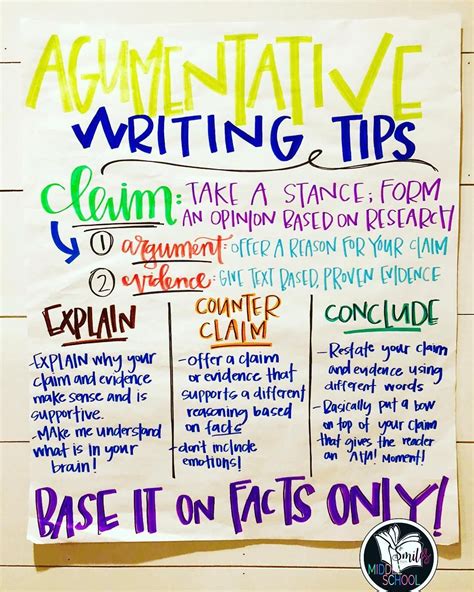 AGUMENTATIVE
WRITING TIPS
claim: TAKE A STANCE; FORM
AN OPINION BASED ON RESEARCH
① argument: OFFER A REASON FOR YOUR CLAIM
② evidence: GIVE TEXT BASED, PROVEN EVIDENCE
EXPLAIN
-EXPLAIN why your
claim and evidence
make sense and is
supportive.
-Make me understand
what is in your
brain!
COUNTER
CLAIM
-Offer a claim
or evidence that
supports a different
reasoning based
on facts
-don't include
emotions!
CONCLUDE
-Restate your claim
and evidence using
different words
-Basically put a bow
on top of your claim
that gives the reader
an "AHA! Moment!
BASE IT ON FACTS ONLY!
Smiles
MIDDLE
SCHOOL